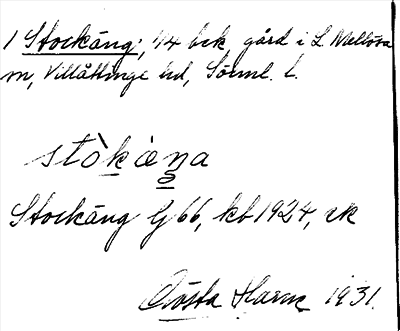 1 Stockäng, 44 bck gård i L. Mellösa
sn, Villåttinge hd, Södml. l.
stò̀kàŋa
Stockäng Gj 66, kb 1924, ek
Gösta Harm 1931.